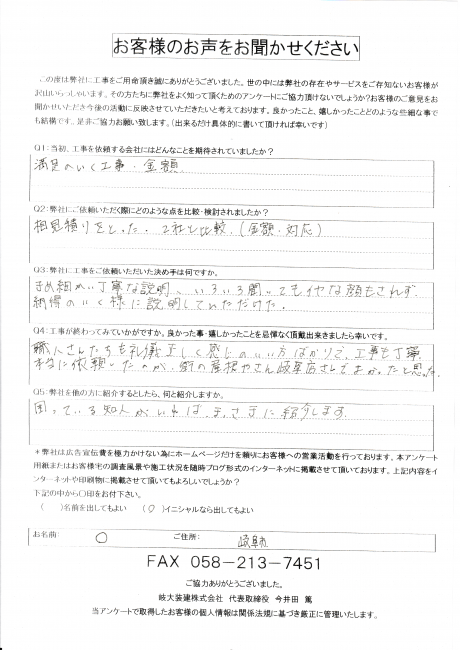 お客様のお声をお聞かせください
この度は弊社に工事をご用命頂き誠にありがとうございました。世の中には弊社の存在やサービスをご存知ないお客様が
沢山いらっしゃいます。その方たちに弊社をよく知って頂くためのアンケートにご協力頂けないでしょうか?お客様のご意見をお
聞かせいただき今後の活動に反映させていただきたいと考えております。良かったこと、嬉しかったことどのような些細な事で
も結構です…是非ご協力お願い致します。(出来るだけ具体的に書いて頂ければ幸いです)
Q1:当初、工事を依頼する会社にはどんなことを期待されていましたか?
満足のいく工事・金額
Q2:弊社にご依頼いただく際にどのような点を比較・検討されましたか?
相見積りをとった。2社と比較。(金額・対応)
Q3:弊社に工事をご依頼いただいた決め手は何ですか。
きめ細かい丁寧な説明、いろいろ聞いてもイヤな顔もされず、
納得のいく様に説明していただけた。
Q4:工事が終わってみていかがですか。良かった事・嬉しかったことを忌憚なく頂戴出来ましたら幸いです。
職人さんたちも礼儀正しく感じのいい方ばかりで、工事も丁寧。
本当に依頼したのが、街の屋根やさん岐阜店さんでよかったと思った。
Q5:弊社を他の方に紹介するとしたら、何と紹介しますか。
困っている知人がいれば、まっさきに紹介します。
*弊社は広告宣伝費を極力かけない為にホームページだけを頼りにお客様への営業活動を行っております。本アンケート
用紙またはお客様宅の調査風景や施工状況を随時ブログ形式のインターネットに掲載させて頂いております。上記内容をイ
ンターネットや印刷物に掲載させて頂いてもよろしいでしょうか?
下記の中から〇印をお付下さい。
( )名前を出してもよい (〇)イニシャルなら出してもよい
お名前: 〇 ご住所: 岐阜市
FAX 058-213-7451
ご協力ありがとうございました。
岐大装建株式会社 代表取締役 今井田 篤
当アンケートで取得したお客様の個人情報は関係法規に基づき厳正に管理いたします。